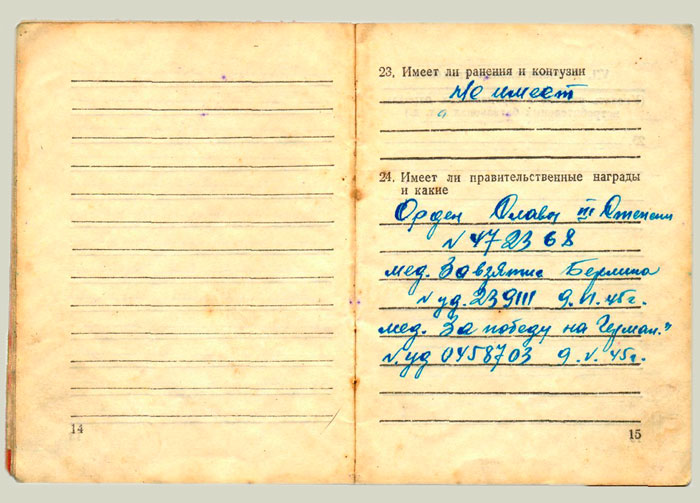 23. Имеет ли ранения и контузии
Не имеет
24. Имеет ли правительственные награды
и какие
Орден Славы III Степени
№ 472368
мед. За взятие Берлина
№ уд. 239111 9.VI.45г.
мед. За победу на Герман."
№ уд 0458703 9.V.45г.
14
15